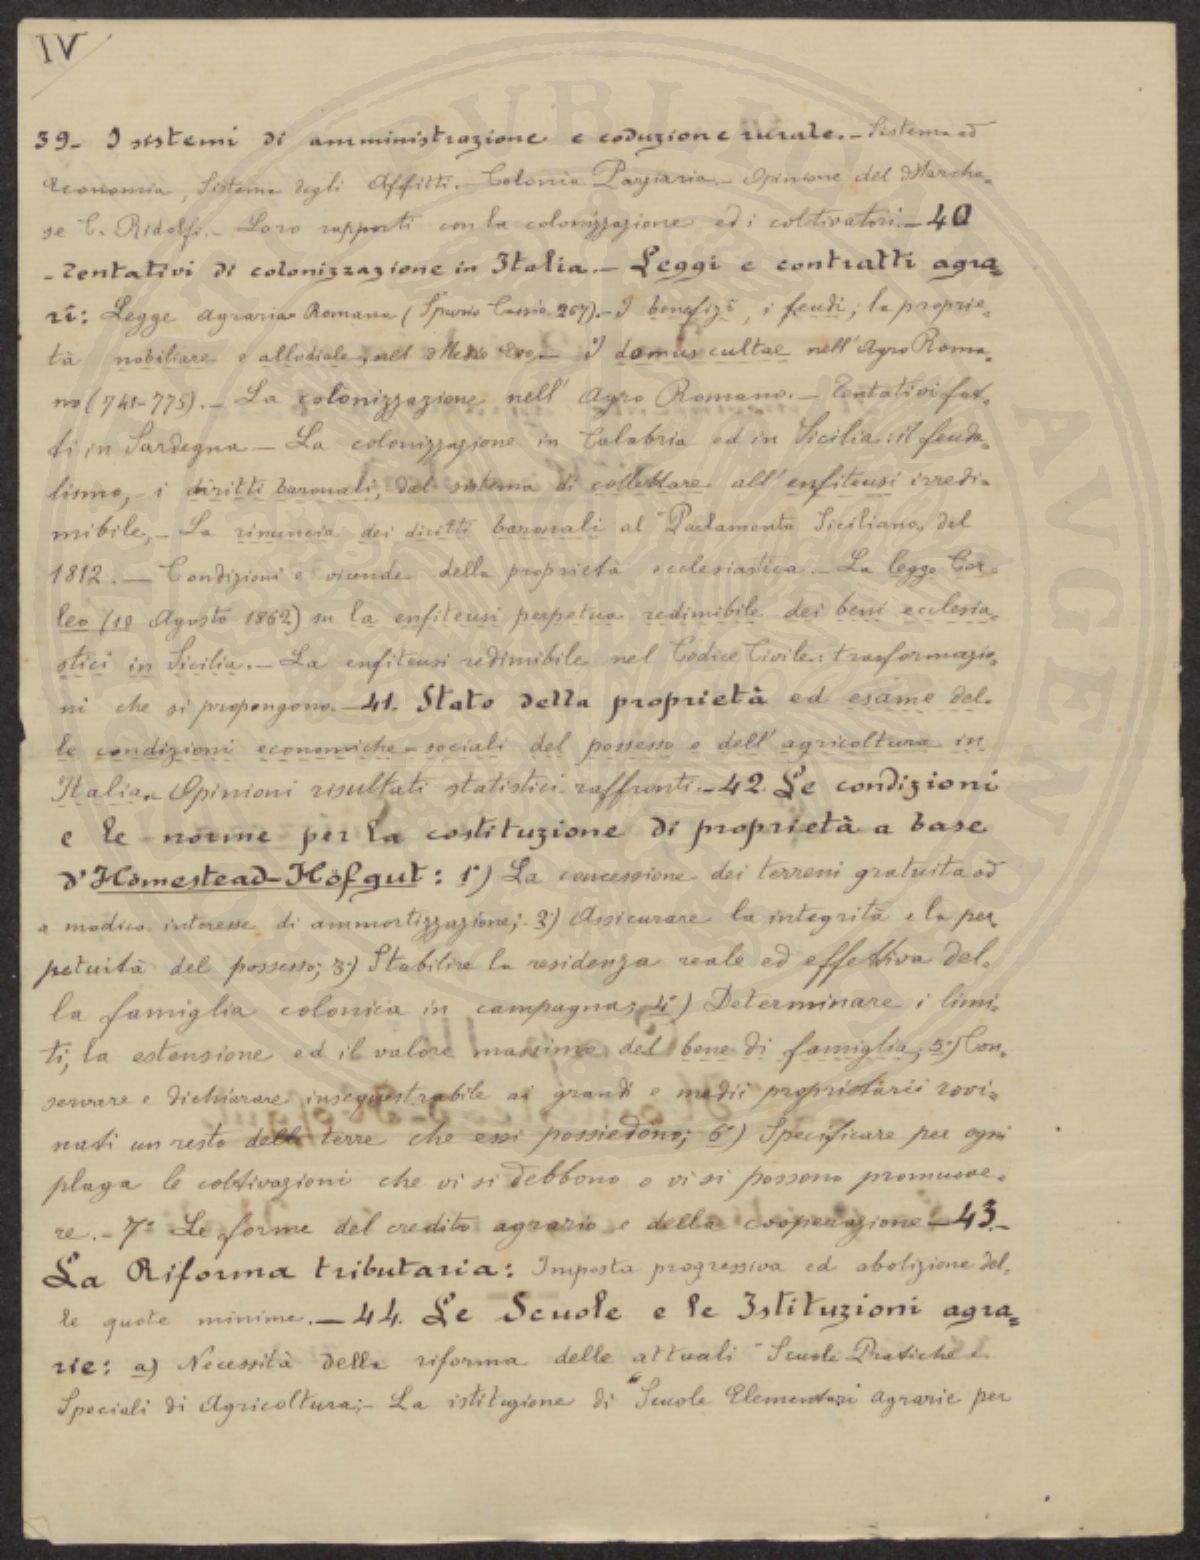 IV
39- I sistemi di amministrazione e coduzione rurale.- Sistema ad
Economia, Sistema degli Affitti.- Colonia Parziaria.- Opinione del Marche-
se C. Ridolfi.- Loro rapporti con la colonizzazione ed i coltivatori.- 40
- Tentativi di colonizzazione in Italia.- Leggi e contratti agra=
ri: Legge Agraria Romana (Spurio Cassio 267).- I benefizi, i feudi; la proprie-
tà nobiliare e allodiale, nel Medio Evo,- I domus cultae nell'Agro Roma-
no (741-775).- La colonizzazione nell' Agro Romano.- Tentativi fat-
ti in Sardegna - La colonizzazione in Calabria ed in Sicilia: il feuda-
lismo,- i diritti baronali, dal sistema di collettare all'enfiteusi irredi-
mibile,- La rinuncia dei diritti baronali al "Parlamento Siciliano, del
1812.- Condizioni e vicende della proprietà ecclesiastica.- La legge Cor-
leo (10 Agosto 1862) su la enfiteusi perpetua redimibile dei beni ecclesia-
stici in Sicilia.- La enfiteusi redimibile nel Codice Civile: trasformazio-
ni che si propongono.- 41. Stato della proprietà ed esame del-
le condizioni economiche-sociali del possesso e dell'agricoltura in
Italia.- Opinioni risultati statistici raffronti.- 42. Le condizioni
e le norme per la costituzione di proprietà a base
d'Homestead-Höfgut: 1°) La concessione dei terreni gratuita od
a modico interesse di ammortizzazione;- 2°) Assicurare la integrità e la per-
petuità del possesso; 3°) Stabilire la residenza reale ed effettiva del-
la famiglia colonica in campagna; 4°) Determinare i limi-
ti, la estensione ed il valore massimo del bene di famiglia; 5°) Con-
servare e dichiarare insequestrabile ai grandi e medii proprietarii rovi-
nati un resto delle terre che essi possiedono; 6°) Specificare per ogni
plaga le coltivazioni che vi si debbono o vi si possono promuove-
re.- 7° Le forme del credito agrario e della cooperazione - 43.-
La Riforma tributaria: Imposta progressiva ed abolizione del-
le quote minime.- 44. Le Scuole e le Istituzioni agra=
rie: a) Necessità della riforma delle attuali "Scuole Pratiche e
Speciali di Agricoltura;- La istituzione di "Scuole Elementari agrarie per